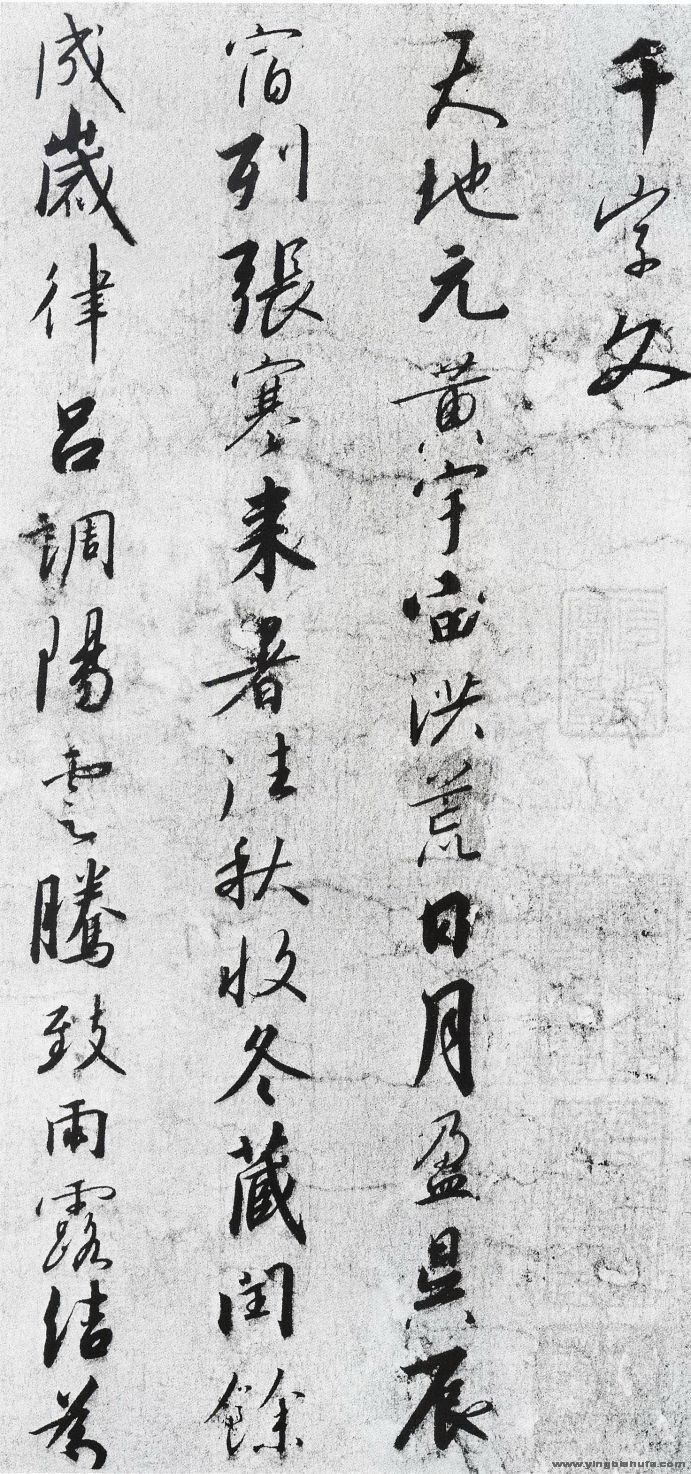 千字文
天地元黃宇宙洪荒日月盈昃辰
宿列張寒来暑往秋收冬藏閏餘
成歲律呂調陽雲騰致雨露結為
www.yingbishufa.com